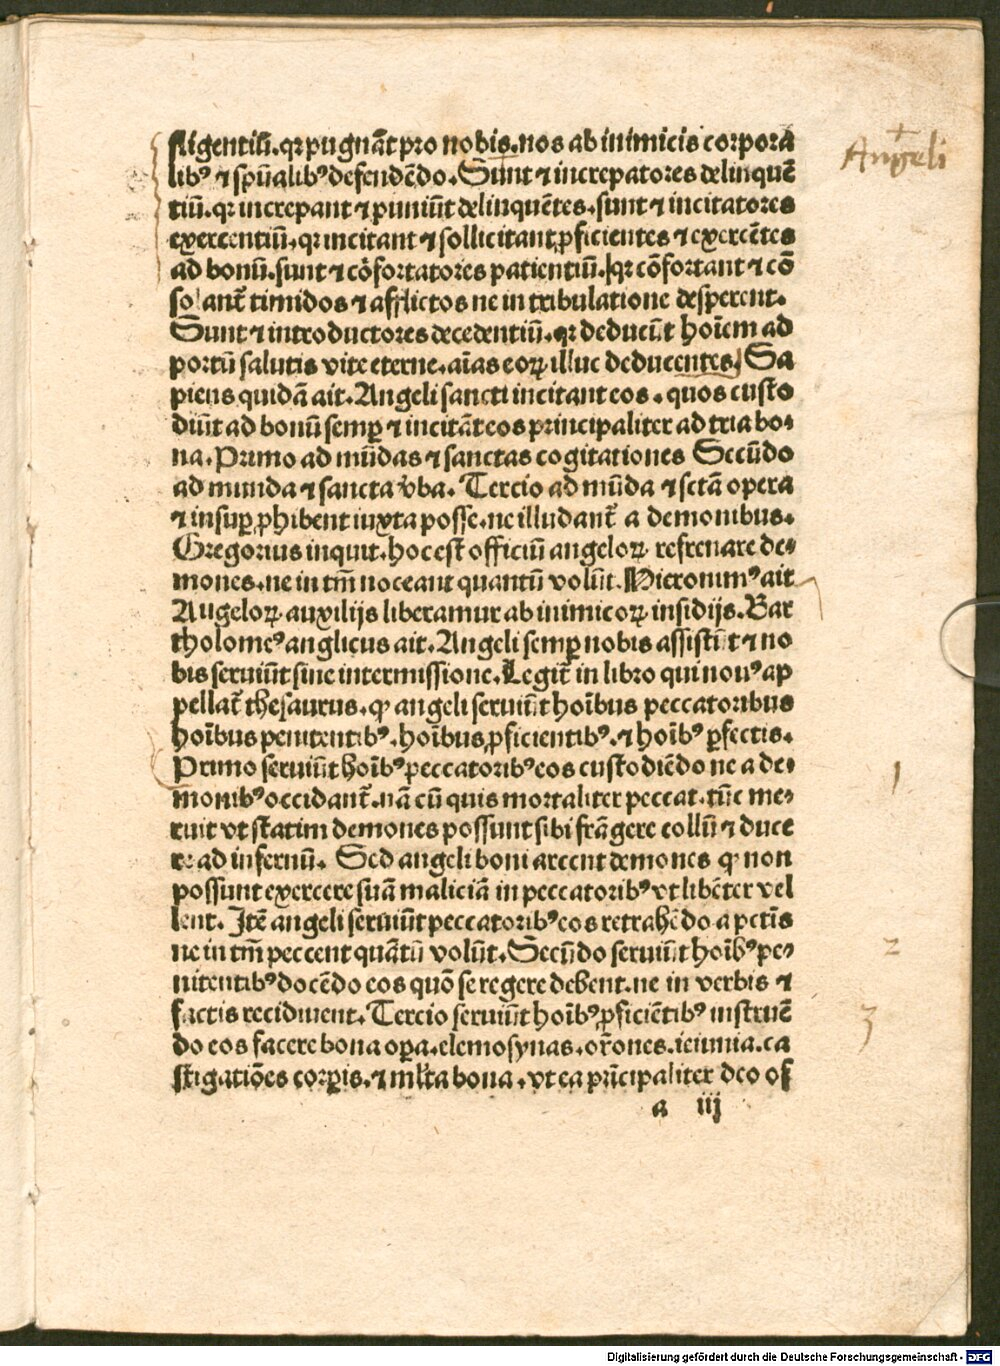 fligentiū. qꝛ pugnāt pro nobis. nos ab inimicis corpora
libꝰ ⁊ spūalibꝰ defendēdo. Sunt ⁊ increpatores delinquē
tiū. qꝛ increpant ⁊ puniūt delinquētes. sunt ⁊ incitatores
exercentiū. qꝛ incitant ⁊ sollicitant ꝓficientes ⁊ exercētes
ad bonū. sunt ⁊ cōfortatores patientiū. qꝛ cōfortant ⁊ cō
solant̄ timidos ⁊ afflictos ne in tribulatione desperent.
Sunt ⁊ introductores decedentiū. qꝛ deducūt hoīem ad
portū salutis vite eterne. aīas eoꝝ illuc deducentes. Sa
piens quidā ait. Angeli sancti incitant eos. quos custo
diūt ad bonū semꝑ ⁊ incitāt eos principaliter ad tria bo⸗
na. Primo ad mūdas ⁊ sanctas cogitationes Secūdo
ad munda ⁊ sancta v̄ba. Tercio ad mūda ⁊ sctā opera
⁊ insuꝑ ꝓhibent iuxta posse. ne illudant̄ a demonibus.
Gregorius inquit. hoc est officiū angeloꝝ refrenare de⸗
mones. ne in tm̄ noceant quantū volūt. Hieronimꝰ ait
Angeloꝝ auxilijs liberamur ab inimicoꝝ insidijs. Bar
tholomeꝰ anglicus ait. Angeli semꝑ nobis assistūt ⁊ no
bis seruiūt sine intermissione. Legit̄ in libro qui nouꝰ ap
pellat̄ thesaurus. qꝫ angeli seruiūt hoībus peccatoribus
hoībus penitentibꝰ. hoībus ꝓficientibꝰ. ⁊ hoībꝰ ꝑfectis.
Primo seruiūt hoībꝰ peccatoribꝰ eos custodiēdo ne a de⸗
monibꝰ occidant̄. nā cū quis mortaliter peccat. tūc me⸗
ruit vt statim demones possunt sibi frāgere collū ⁊ duce
re ad infernū. Sed angeli boni arcent demones qꝫ non
possunt exercere suā maliciā in peccatoribꝰ vt libēter vel
lent. Itē angeli seruiūt peccatoribꝰ eos retrahēdo a pctīs
ne in tm̄ peccent quātū volūt. Secūdo seruiūt hoībꝰ pe⸗
nitentibꝰ docēdo eos quō se regere debent. ne in verbis ⁊
factis recidiuent. Tercio seruiūt hoībꝰ ꝓficiētibꝰ instruē
do eos facere bona oꝑa. elemosynas. or̄ones. ieiunia. ca
stigatiōes corꝑis. ⁊ mlt̄a bona. vt ea prīcipaliter deo of
a iij
Angeli
1
2
3
Digitalisierung gefördert durch die Deutsche Forschungsgemeinschaft - DFG